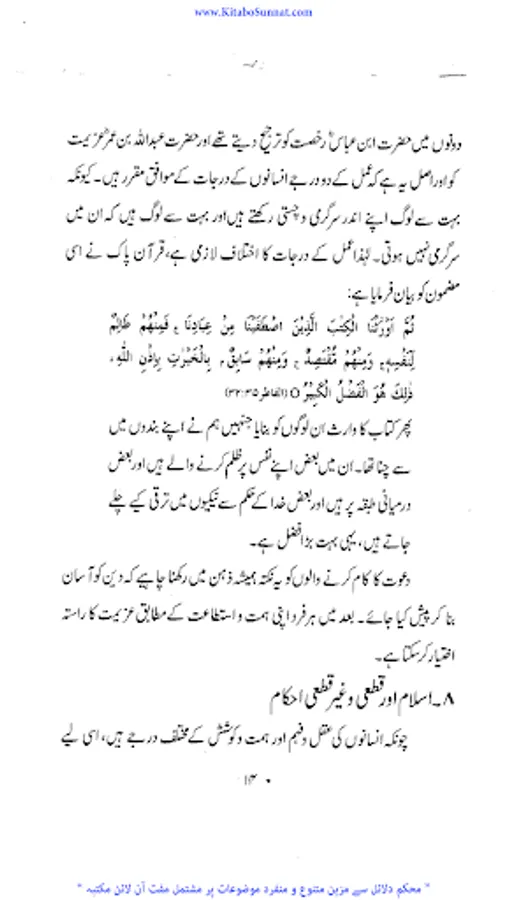 www.KitaboSunnat.com
دونوں میں حضرت ابن عباسؓ رخصت کو ترجیح دیتے تھے اور حضرت عبداللہ بن عمرؓ عزیمت
کو اور اصل یہ ہے کہ عمل کے دو درجے انسانوں کے درجات کے موافق مقرر ہیں۔ کیونکہ
بہت سے لوگ اپنے اندر سرگرمی و چستی رکھتے ہیں اور بہت سے لوگ ہیں کہ ان میں
سرگرمی نہیں ہوتی۔ لہٰذا عمل کے درجات کا اختلاف لازمی ہے، قرآن پاک نے اسی
مضمون کو بیان فرمایا ہے:
ثُمَّ اَوْرَثْنَا الْكِتٰبَ الَّذِيْنَ اصْطَفَيْنَا مِنْ عِبَادِنَا ۚ فَمِنْهُمْ ظَالِمٌ
لِّنَفْسِهٖ ۚ وَمِنْهُمْ مُّقْتَصِدٌ ۚ وَمِنْهُمْ سَابِقٌۢ بِالْخَيْرٰتِ بِاِذْنِ اللّٰهِ ۭ
ذٰلِكَ هُوَ الْفَضْلُ الْكَبِيْرُ ○ (الفاطر ۳۵:۳۲)
پھر کتاب کا وارث ان لوگوں کو بنایا جنہیں ہم نے اپنے بندوں میں
سے چنا تھا۔ ان میں بعض اپنے نفس پر ظلم کرنے والے ہیں اور بعض
درمیانی طبقہ پر ہیں اور بعض خدا کے حکم سے نیکیوں میں ترقی کیے چلے
جاتے ہیں، یہی بہت بڑا فضل ہے۔
دعوت کا کام کرنے والوں کو یہ نکتہ ہمیشہ ذہن میں رکھنا چاہیے کہ دین کو آسان
بنا کر پیش کیا جائے۔ بعد میں ہر فرد اپنی ہمت و استطاعت کے مطابق عزیمت کا راستہ
اختیار کر سکتا ہے۔
۸۔ اسلام اور قطعی و غیر قطعی احکام
چونکہ انسانوں کی عقل و فہم اور ہمت و کوشش کے مختلف درجے ہیں، اسی لیے
"محکم دلائل سے مزین متنوع و منفرد موضوعات پر مشتمل مفت آن لائن مکتبہ"